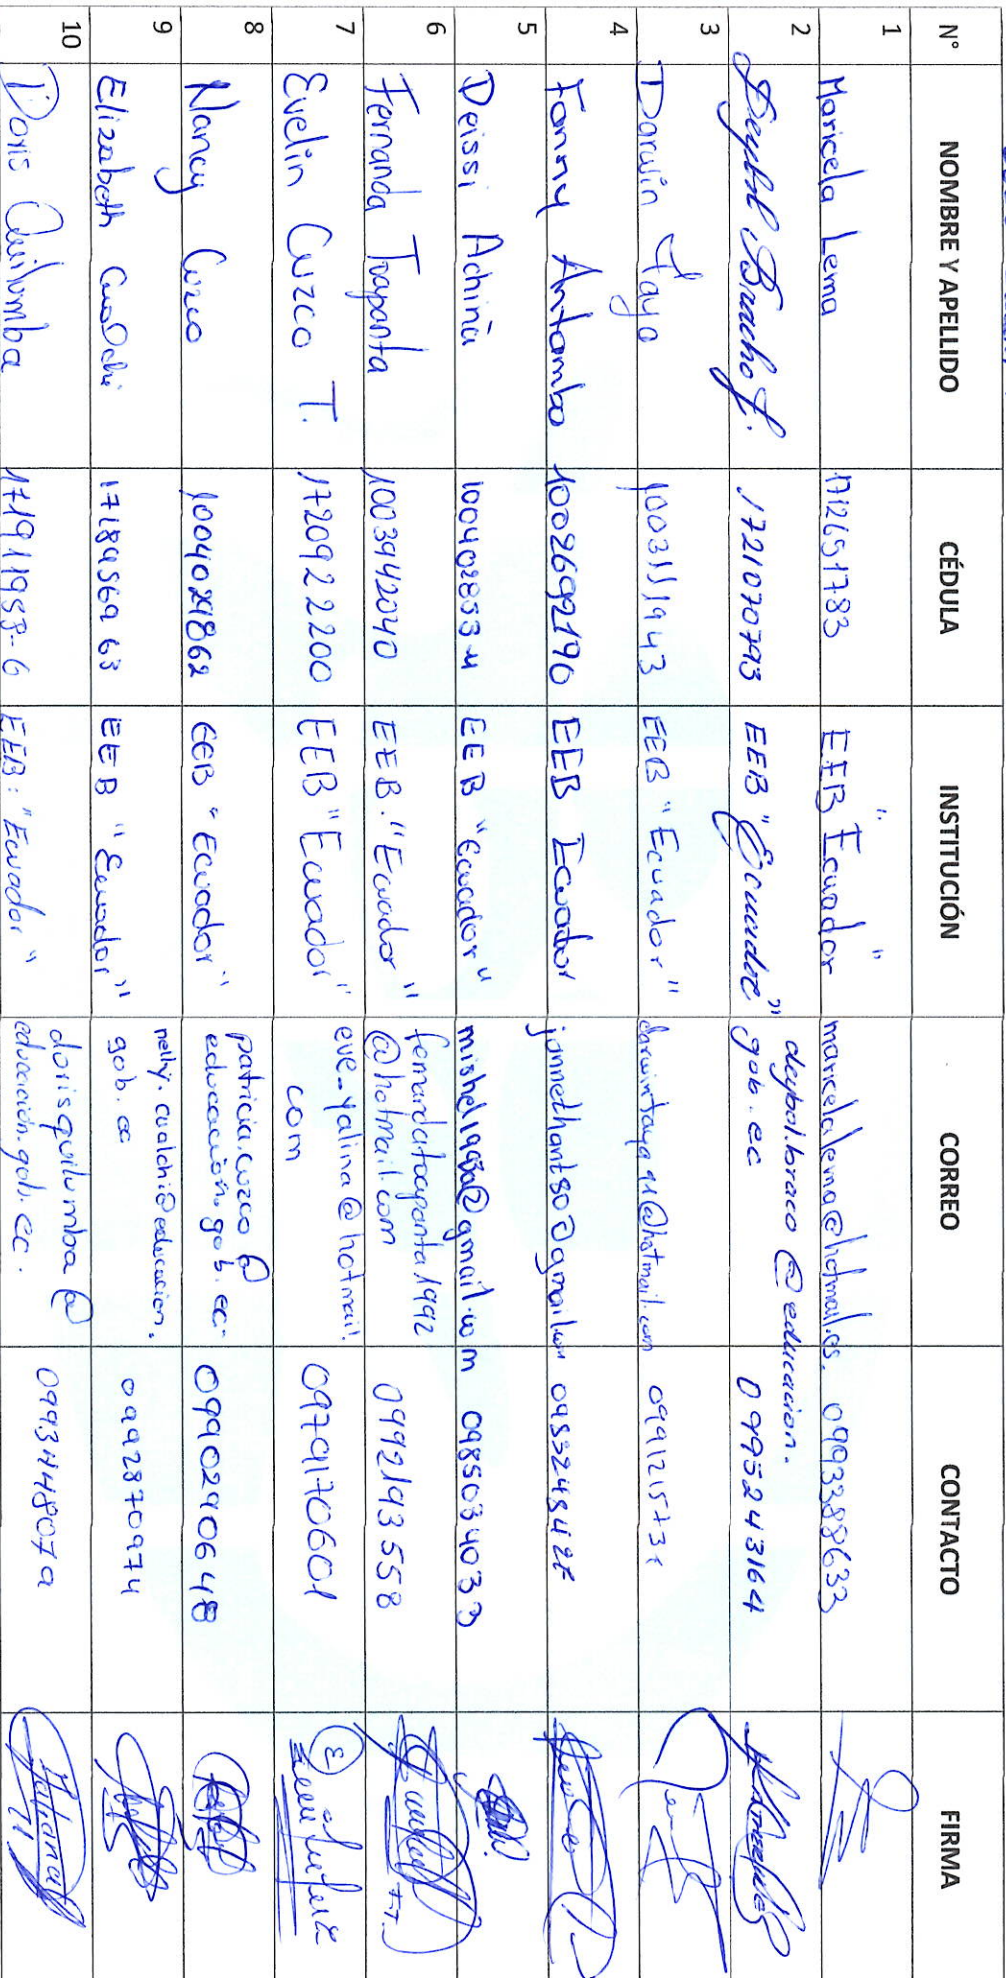 N° NOMBRE Y APELLIDO CÉDULA INSTITUCIÓN CORREO CONTACTO FIRMA
1 Maricela Lema 1712651783 EEB "Ecuador" maricelalema@hotmail.es. 0993388633
2 Deybol Bracho J. 1721070793 EEB "Ecuador" deybol.braco@educacion.
gob.ec 0995243164
3 Darwin Taya 1003111943 EEB "Ecuador" darwintaya91@hotmail.com 099121573
4 Fanny Antamba 1002692190 EEB Ecuador jannethant80@gmail.com
5 Deissi Achiña 100402853-4 EEB "Ecuador" 0985034033
6 Fernanda Toapanta 1003942040 EEB. "Ecuador" fernandatoapanta1992
@hotmail.com 0992193558
7 Evelin Cuzco T. 1720922200 EEB "Ecuador" eve_yalina@hotmail.
com 0979170601
8 Nancy Cuzco 1004024862 EEB "Ecuador" patricia.cuzco@
educacion.gob.ec. 0990290648
9 Elizabeth Cualchi 1718456963 EEB "Ecuador" nelly.cualchi@educacion.
gob.ec 0992870974
10 Doris Quilumba 171911958-6 EEB: "Ecuador" dorisquilumba@
educacion.gob.ec.